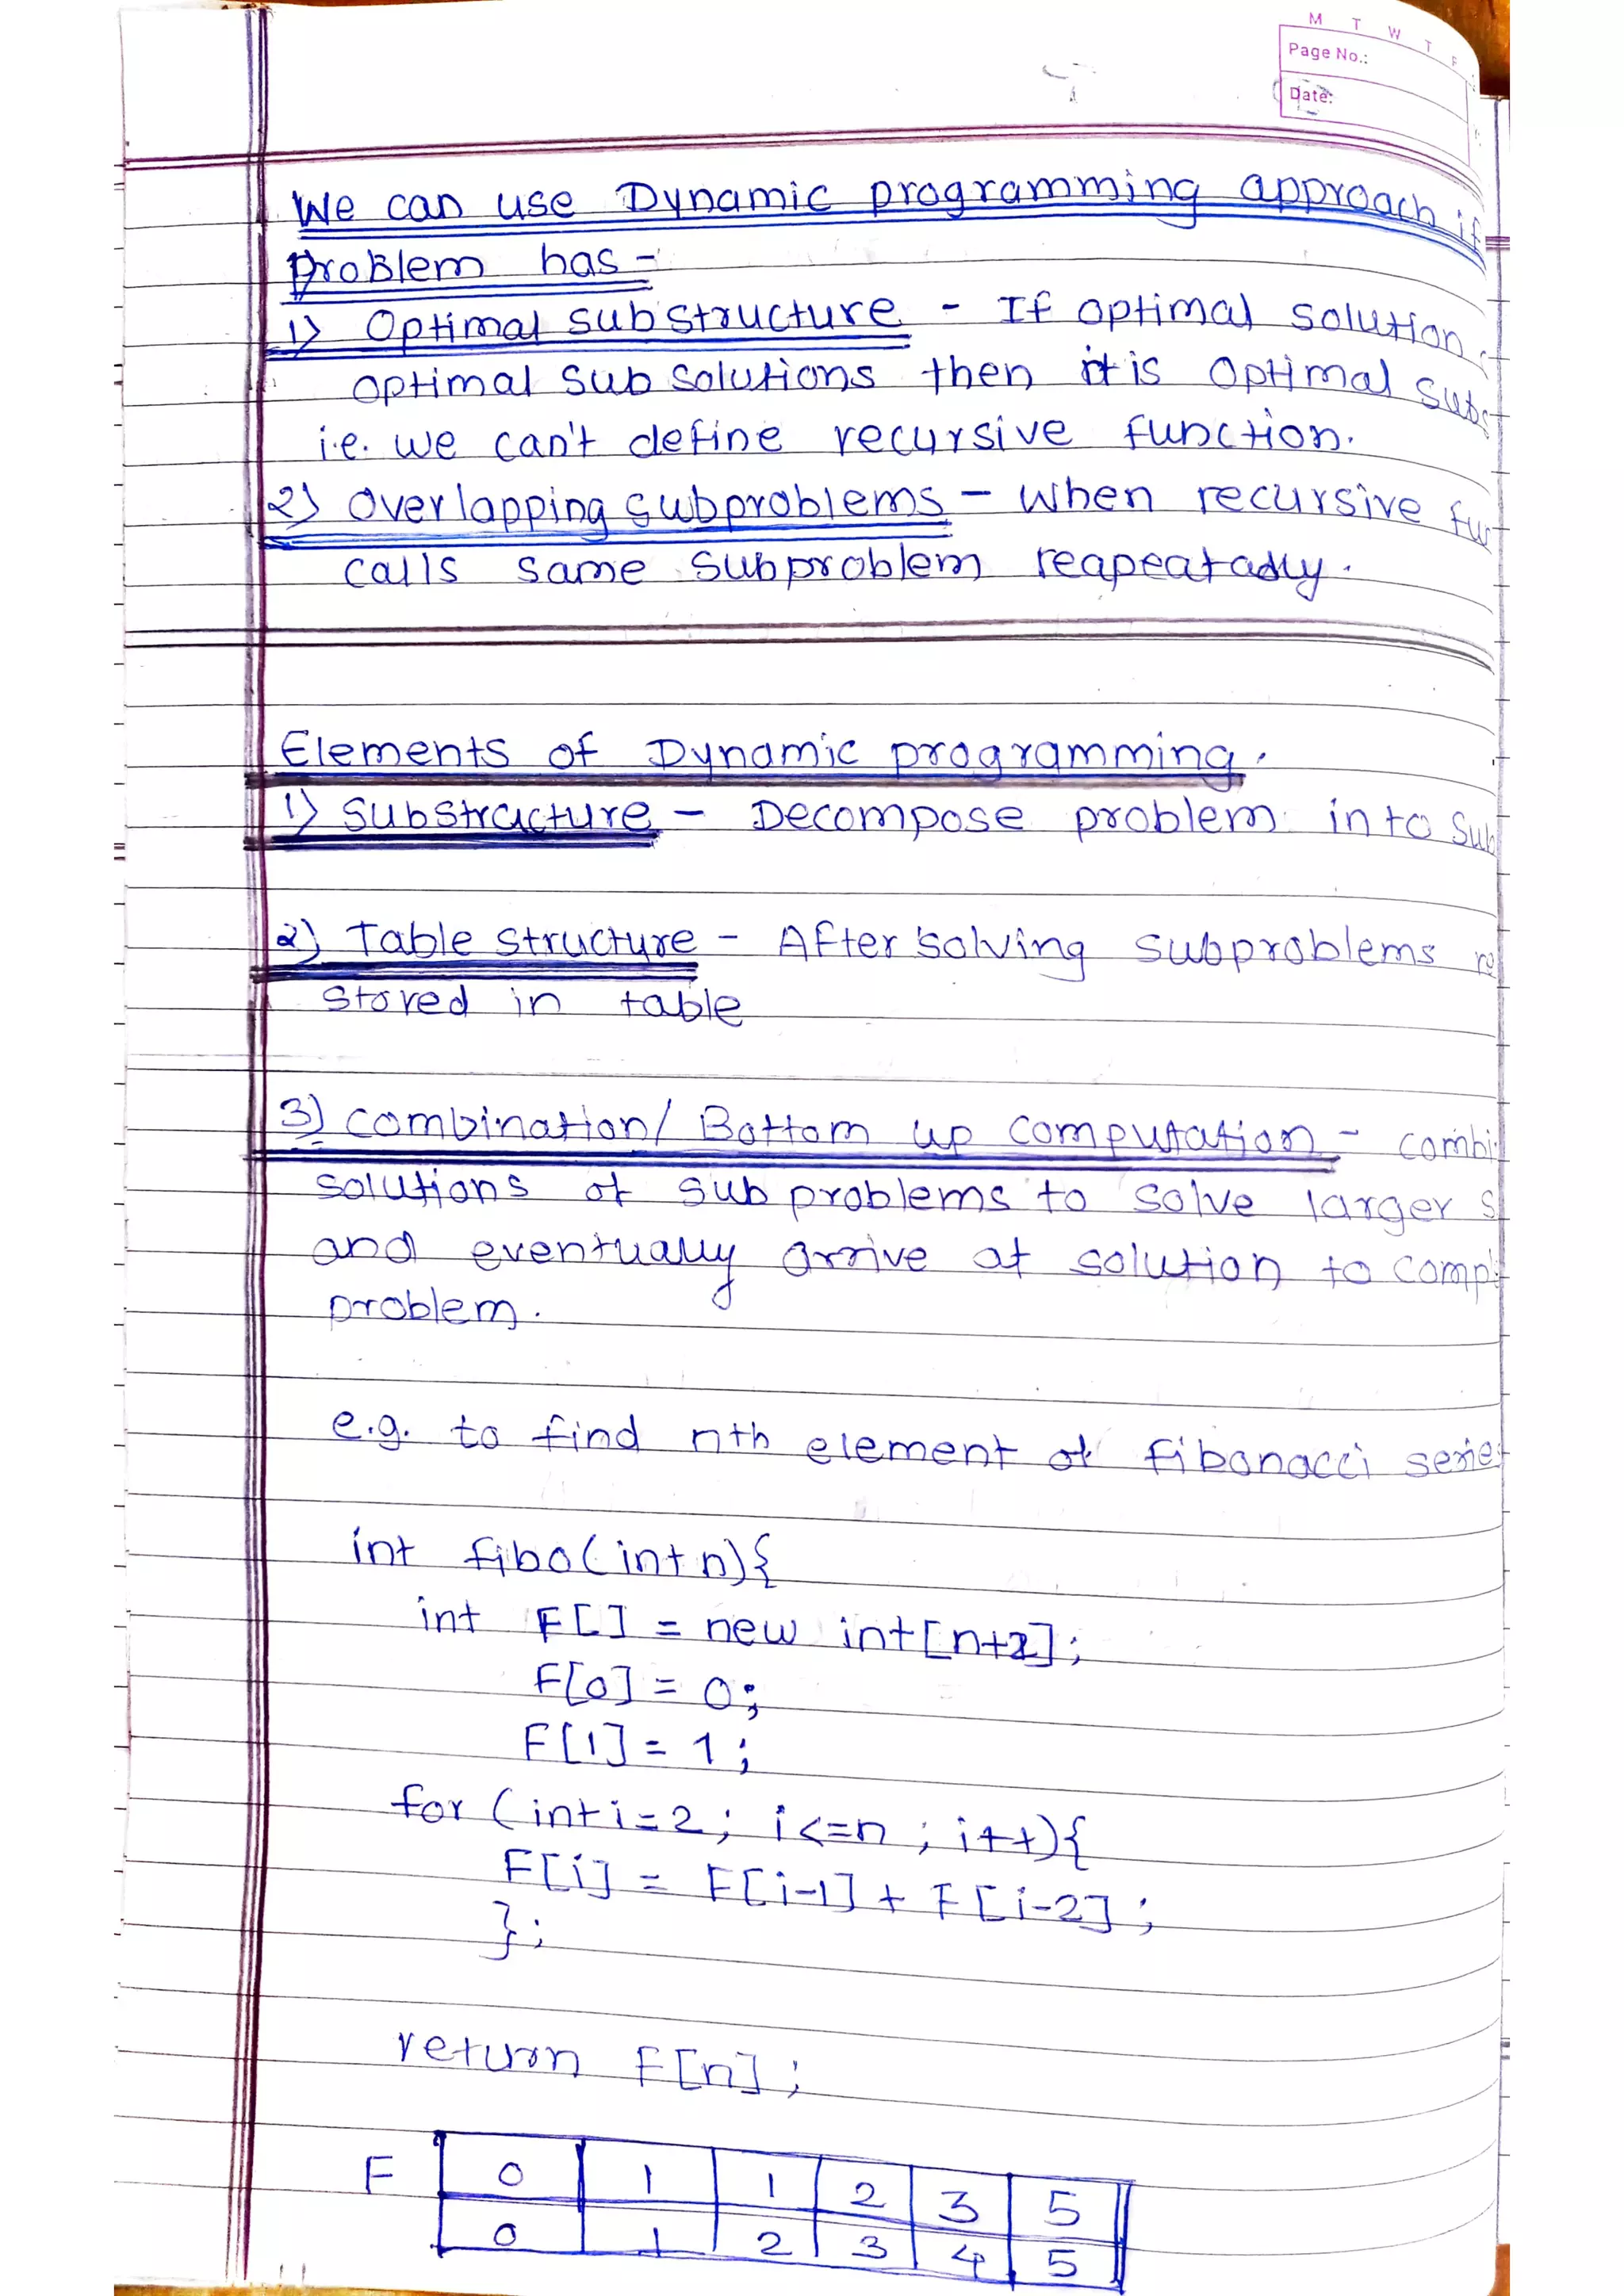 M T W T F
Page No.:
Date:
We can use Dynamic programming approach if
problem has -
1) Optimal substructure - If optimal solution
optimal sub solutions then it is optimal subs
i.e. we can't define recursive function.
2) Overlapping subproblems - When recursive fu
calls same subproblem reapeatadly.
Elements of Dynamic programming.
1) Substructure - Decompose problem into sub
2) Table structure - After solving subproblems re
stored in table
3) Combination/ Bottom up computation - combi
solutions of sub problems to solve larger s
and eventually arrive at solution to comp
problem.
e.g. to find nth element of fibonacci serie
int fibo(int n){
int F[] = new int[n+2];
F[0] = 0;
F[1] = 1;
for (int i=2; i<=n ; i++){
F[i] = F[i-1] + F[i-2];
};
return F[n];
F 0 1 1 2 3 5
0 1 2 3 4 5